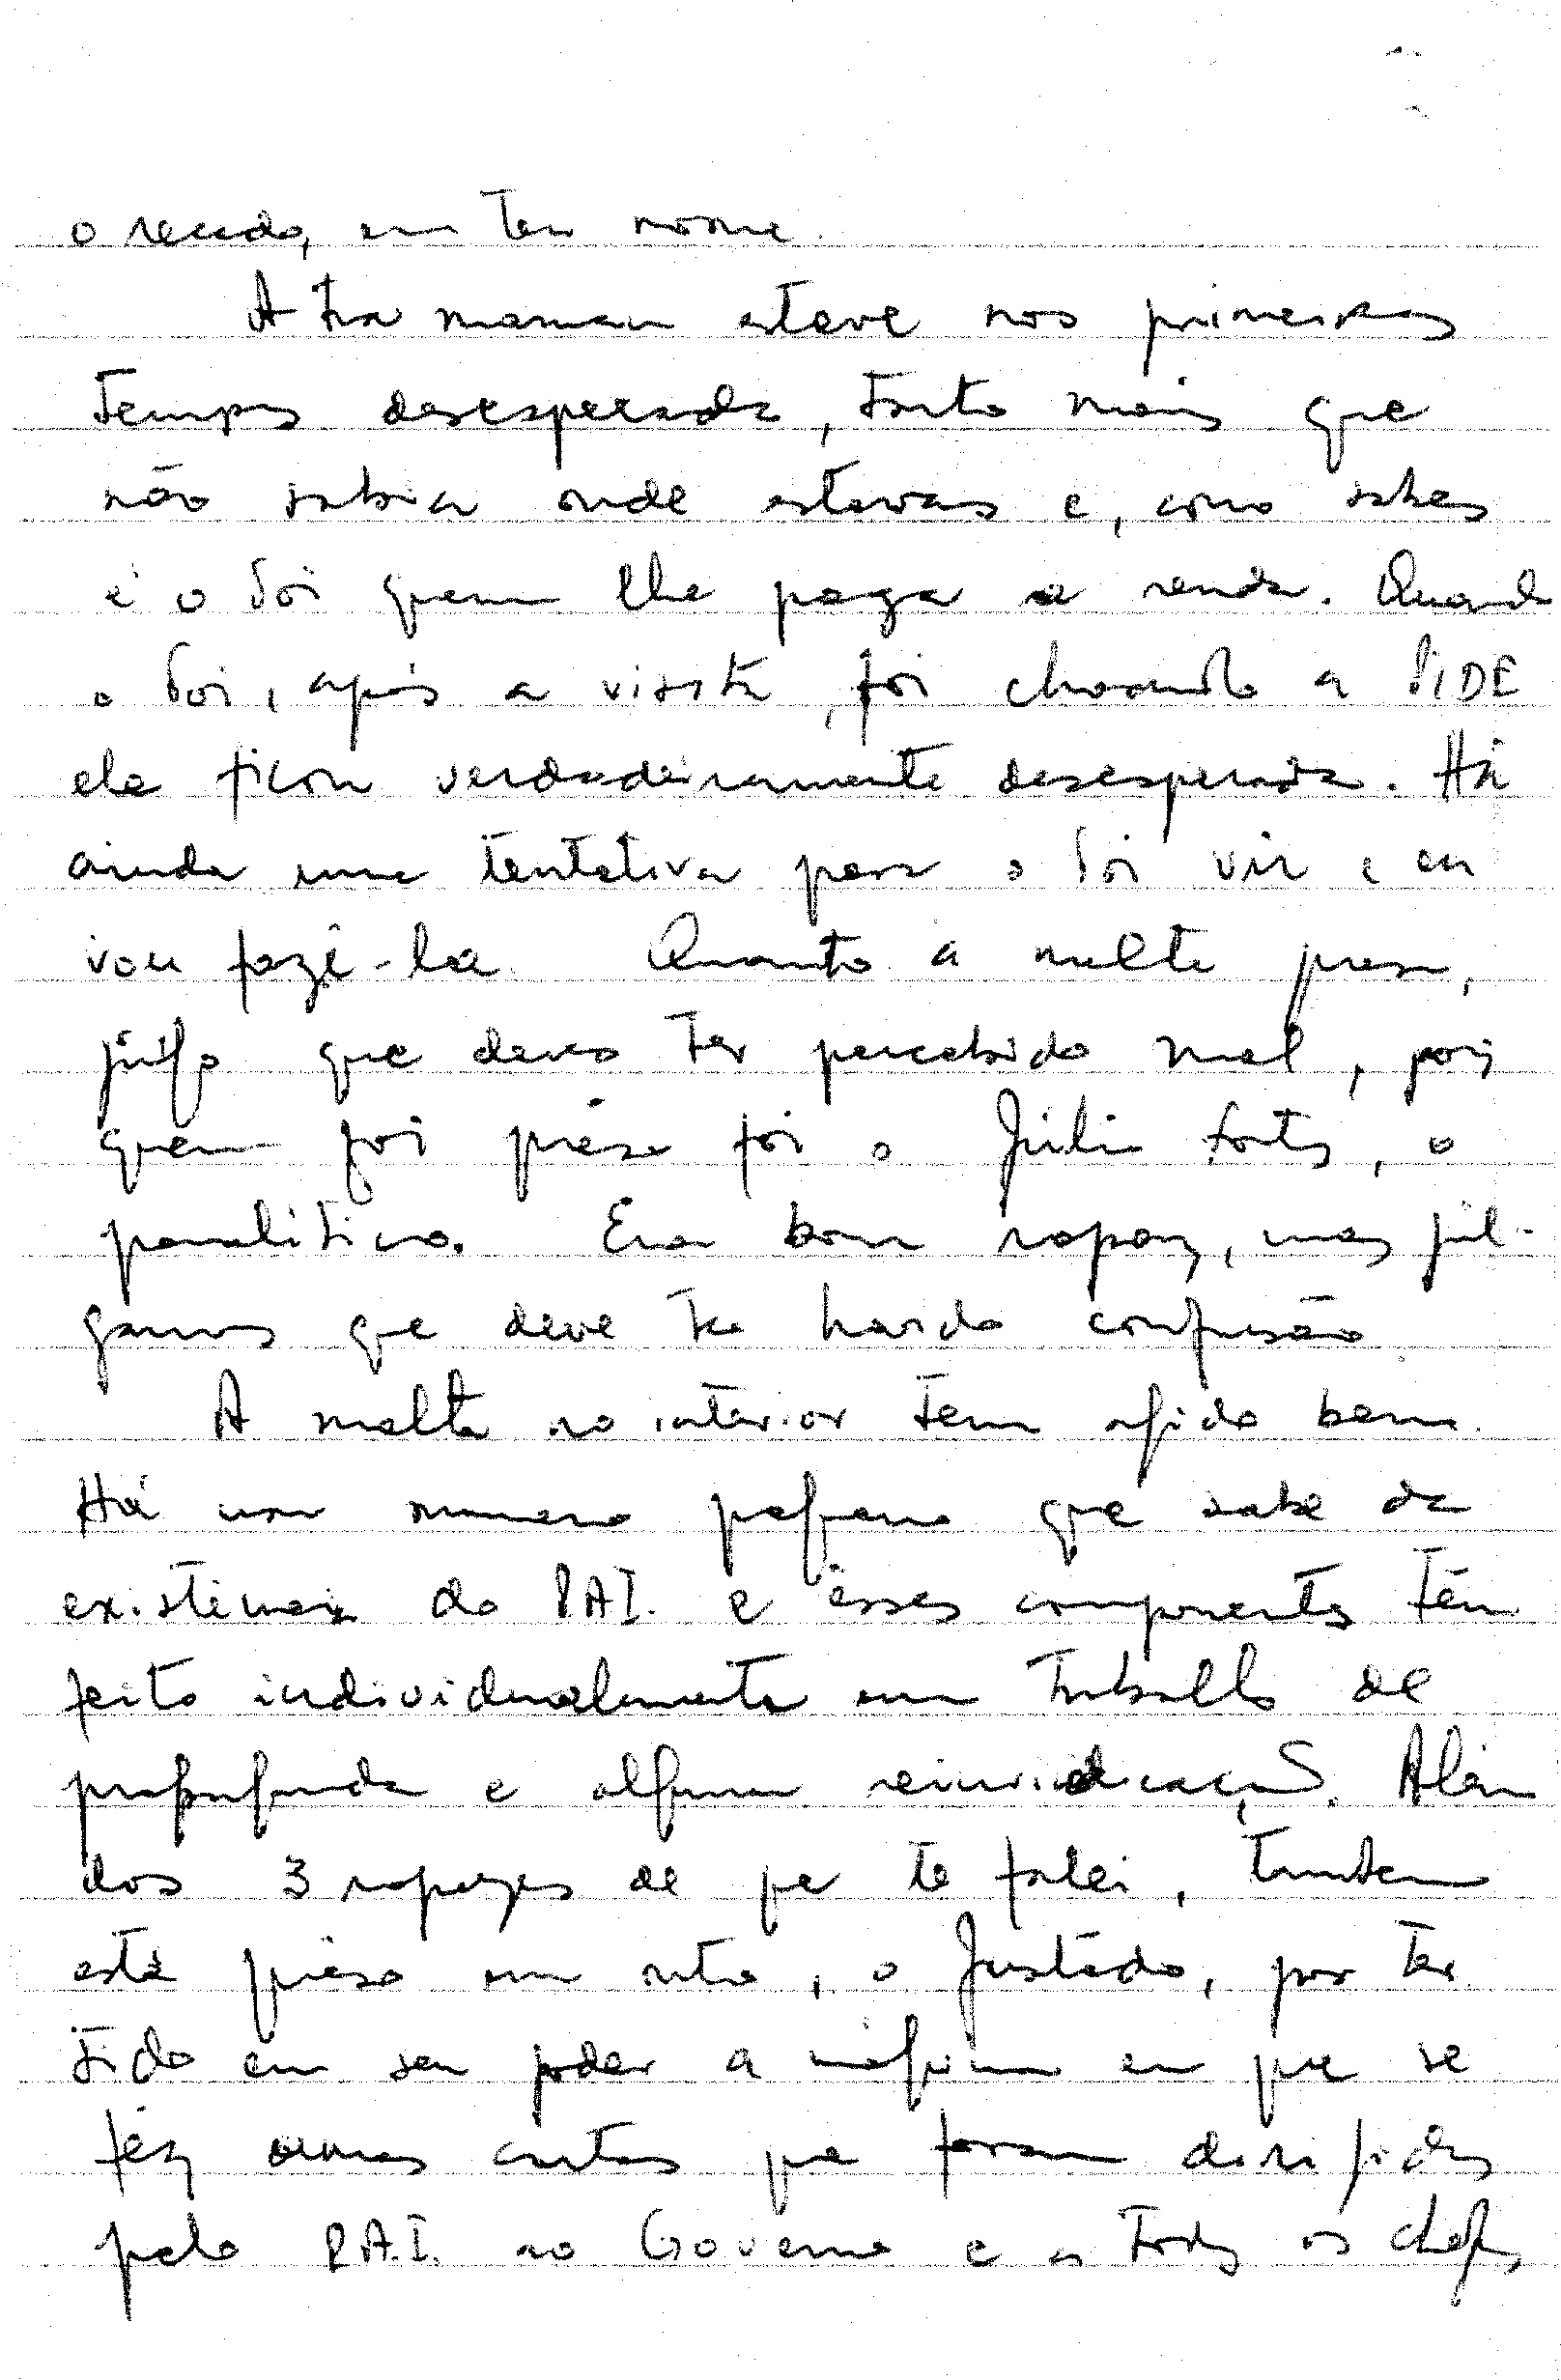 o recado, em teu nome.
A tua maman esteve nos primeiros
tempos desesperada, tanto mais que
não sabia onde estavas e, como sabes
é o Toi quem lhe paga a renda. Quando
o Toi, após a visita, foi chamado a PIDE
ela ficou verdadeiramente desesperada. Há
ainda uma tentativa para o Toi vir e eu
vou fazê-la. Quanto a malta presa,
julgo que deves ter percebido mal, pois
quem foi prêso foi o Júlio Fortes, o
paralitico. Era bom rapaz, mas jul-
gamos que deve ter havido confusão.
A malta no interior tem agido bem.
Há um numero pequeno que sabe da
existência do P.A.I. e êsses componentes têm
feito individualmente um trabalho de
propaganda e alguma reinvidicação. Alem
dos 3 rapazes de que te falei, tambem
está prêso um outro, o Justado, por ter
tido em seu poder a máquina em que se
fêz umas cartas que foram dirigidas
pelo P.A.I. ao Governo e a todos os chefes